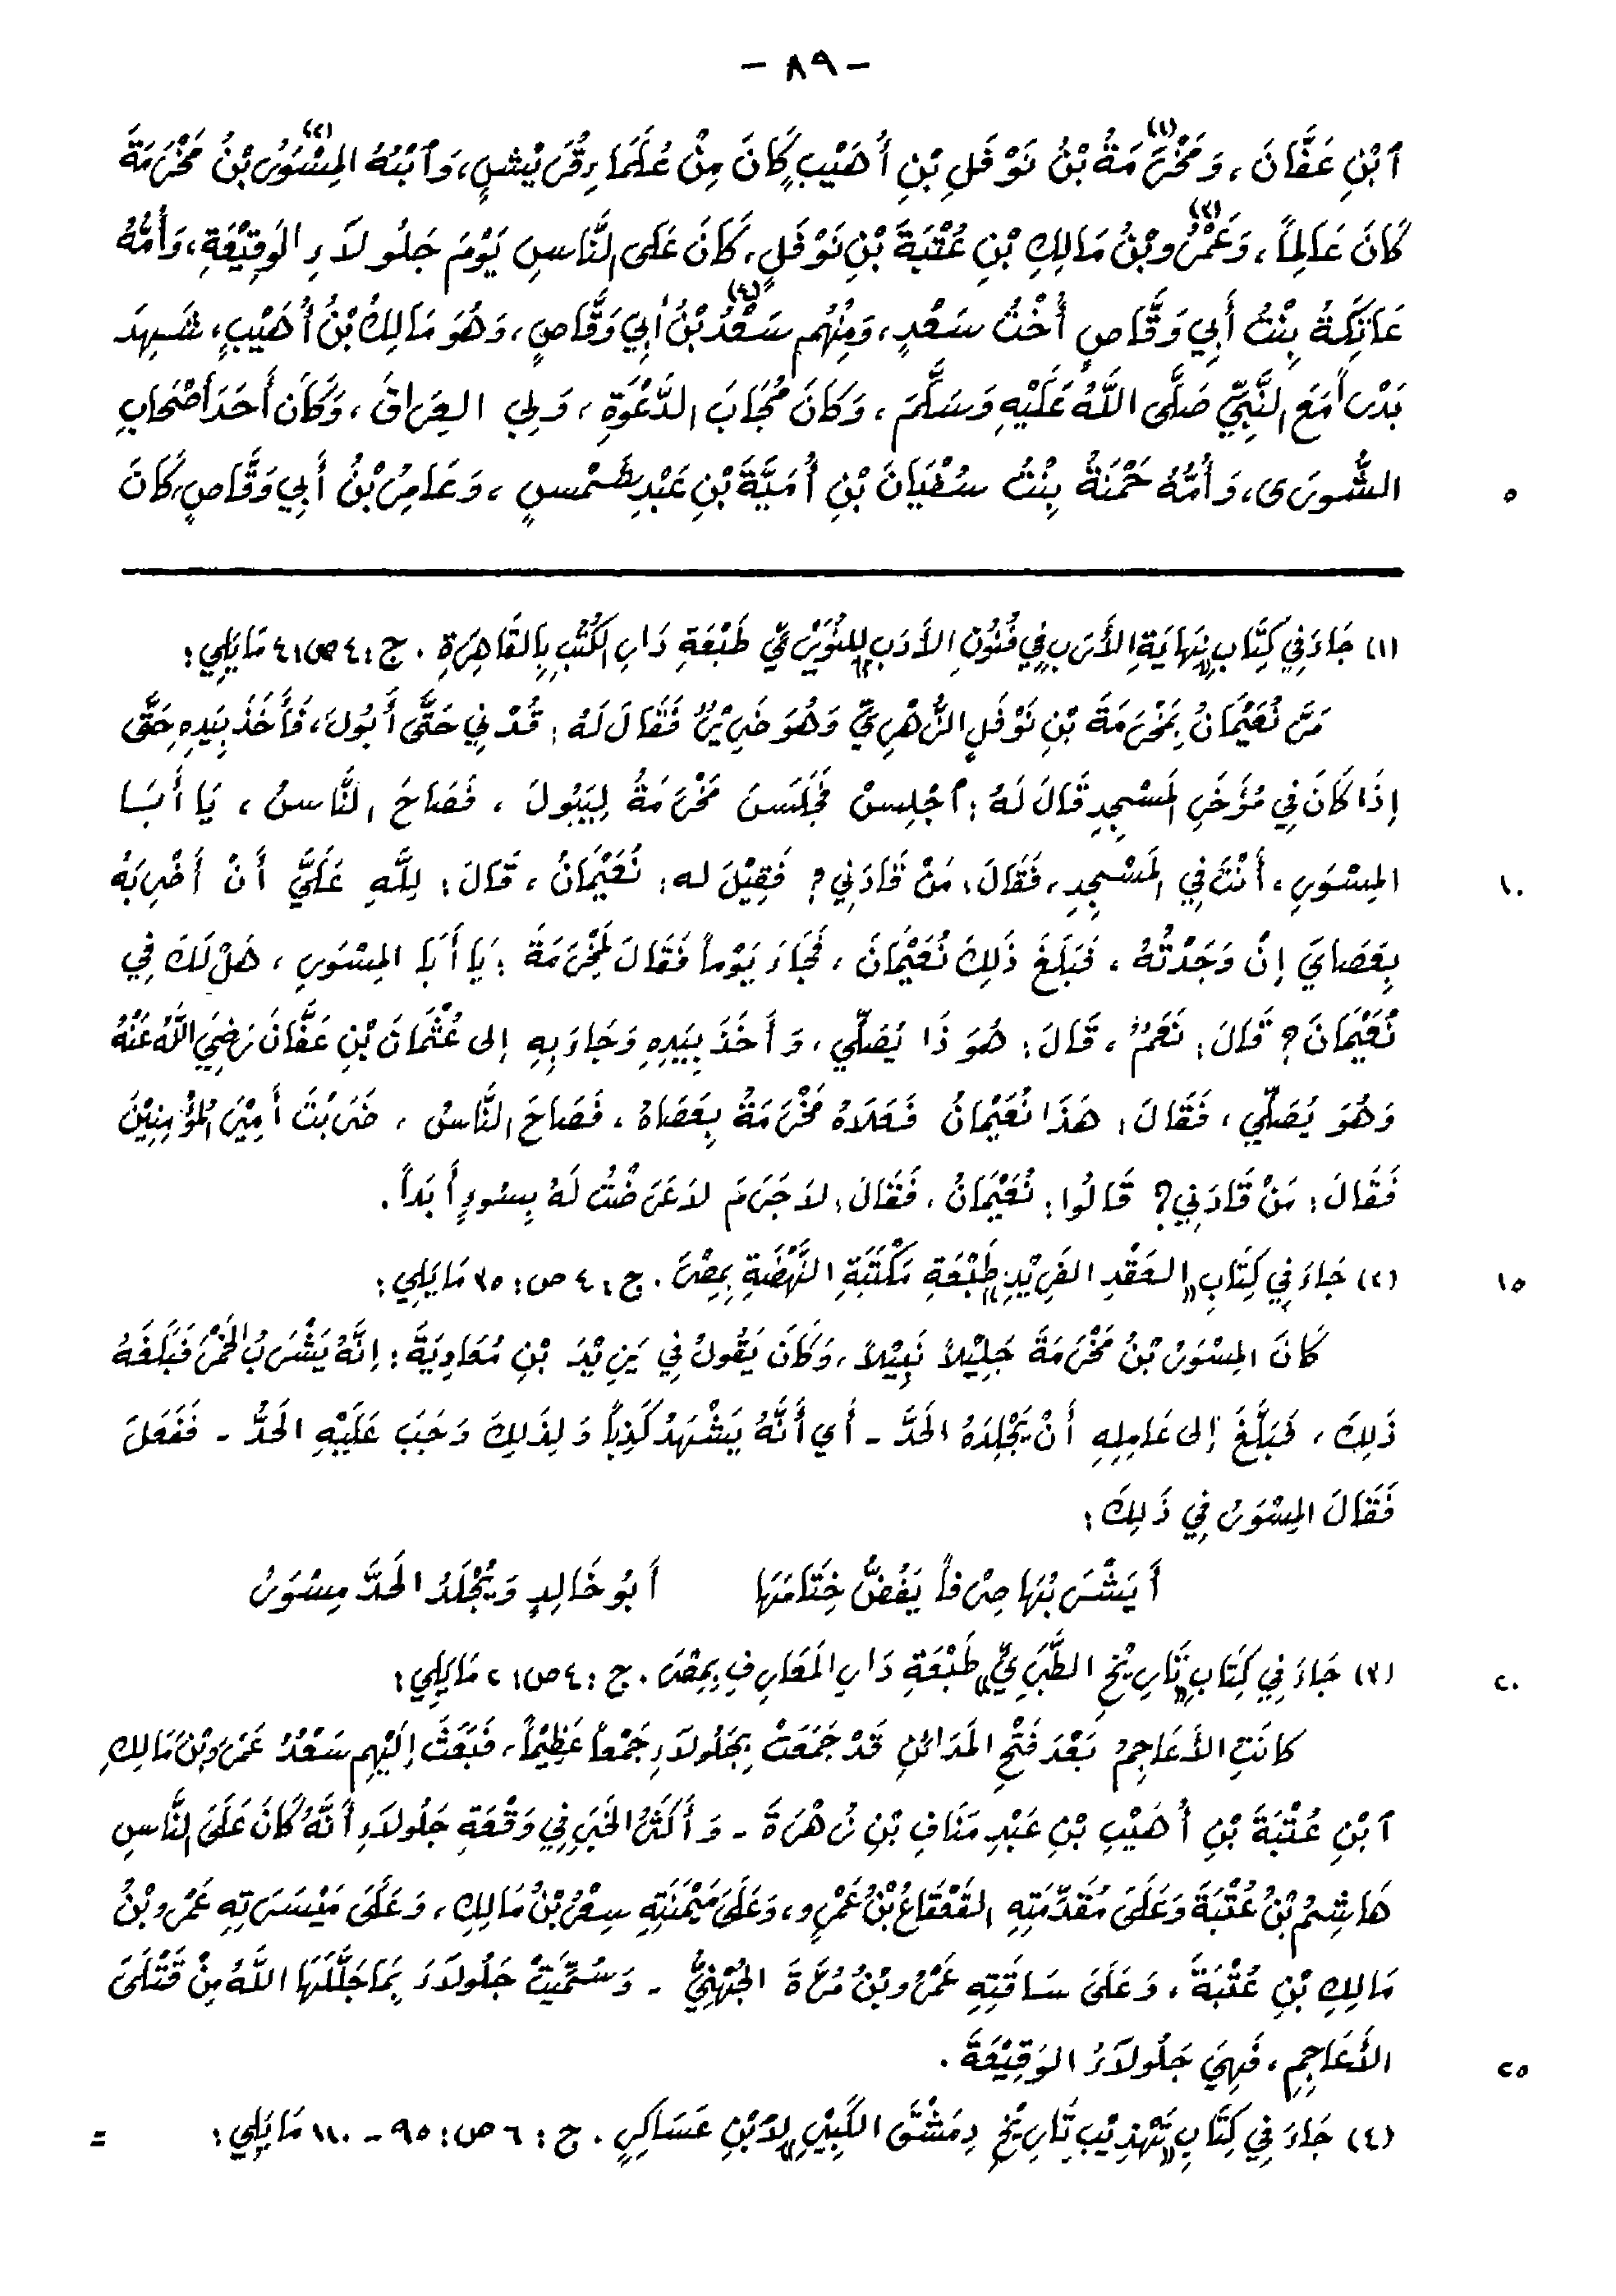 - ٨٩ -
ٱبْنِ عَفَّانَ، وَمَخْرَمَةُ (١) بْنُ نَوْفَلِ بْنِ أُهَيْبٍ كَانَ مِنْ عُلَمَاءِ قُرَيْشٍ، وَٱبْنُهُ المِسْوَرُ (٢) بْنُ مَخْرَمَةَ
كَانَ عَالِماً، وَعَمْرُو (٣) بْنُ مَالِكِ بْنِ عُتْبَةَ بْنِ نَوْفَلٍ، كَانَ عَلَى النَّاسِ يَوْمَ جَلُولَاءِ الوَقِيْعَةِ، وَأُمُّهُ
عَاتِكَةُ بِنْتُ أَبِي وَقَّاصٍ أُخْتُ سَعْدٍ، وَمِنْهُم سَعْدُ (٤) بْنُ أَبِي وَقَّاصٍ، وَهُوَ مَالِكُ بْنُ أُهَيْبٍ، شَهِدَ
بَدْراً مَعَ النَّبِيِّ صَلَّى اللَّهُ عَلَيْهِ وَسَلَّمَ، وَكَانَ مُجَابَ الدَّعْوَةِ، وَلِي العِرَاقَ، وَكَانَ أَحَدَ أَصْحَابِ
الشُّورَى، وَأُمُّهُ حَمْنَةُ بِنْتُ سُفْيَانَ بْنِ أُمَيَّةَ بْنِ عَبْدِ شَمْسٍ، وَعَامِرُ بْنُ أَبِي وَقَّاصٍ، كَانَ
٥
(١) جَاءَ فِي كِتَابِ «نِهَايَةِ الأَرَبِ فِي فُنُونِ الأَدَبِ» لِلنُّوَيْرِيِّ طَبْعَةِ دَارِ الكُتُبِ بِالقَاهِرَةِ. ج: ٤ ص: ٤ مَا يَلِي:
مَرَّ نُعَيْمَانُ بِمَخْرَمَةَ بْنِ نَوْفَلٍ الزُّهْرِيِّ وَهُوَ ضَرِيْرٌ فَقَالَ لَهُ: قُدْنِي حَتَّى أَبُولَ، فَأَخَذَ بِيَدِهِ حَتَّى
إِذَا كَانَ فِي مُؤَخَّرِ المَسْجِدِ قَالَ لَهُ: ٱجْلِسْ فَجَلَسَ مَخْرَمَةُ لِيَبُولَ، فَصَاحَ النَّاسُ، يَا أَبَا
المِسْوَرِ، أَنْتَ فِي المَسْجِدِ، فَقَالَ: مَنْ قَادَنِي؟ فَقِيْلَ له: نُعَيْمَانُ، قَالَ: لِلَّهِ عَلَيَّ أَنْ أَضْرِبَهُ
١٠
بِعَصَايَ إِنْ وَجَدْتُهُ، فَبَلَغَ ذَلِكَ نُعَيْمَانَ، فَجَاءَ يَوْماً فَقَالَ لِمَخْرَمَةَ: يَا أَبَا المِسْوَرِ، هَلْ لَكَ فِي
نُعَيْمَانَ؟ قَالَ: نَعَمْ، قَالَ: هُوَ ذَا يُصَلِّي، وَأَخَذَ بِيَدِهِ وَجَاءَ بِهِ إلى عُثْمَانَ بْنِ عَفَّانَ رَضِيَ اللَّهُ عَنْهُ
وَهُوَ يُصَلِّي، فَقَالَ: هَذَا نُعَيْمَانُ فَعَلَاهُ مَخْرَمَةُ بِعَصَاهُ، فَصَاحَ النَّاسُ، ضَرَبْتَ أَمِيْرَ المُؤْمِنِيْنَ
فَقَالَ: مَنْ قَادَنِي؟ قَالُوا: نُعَيْمَانُ، فَقَالَ: لاجَرَمَ لاعَرَضْتُ لَهُ بِسُوءٍ أَبَداً.
(٢) جَاءَ فِي كِتَابِ «العَقْدِ الفَرِيْدِ» طَبْعَةِ مَكْتَبَةِ النَّهْضَةِ بِمِصْرَ. ج: ٤ ص: ٣٥ مَا يَلِي:
١٥
كَانَ المِسْوَرُ بْنُ مَخْرَمَةَ جَلِيْلاً نَبِيْلاً، وَكَانَ يَقُولُ فِي يَزِيْدَ بْنِ مُعَاوِيَةَ: إِنَّهُ يَشْرَبُ الخَمْرَ فَبَلَغَهُ
ذَلِكَ، فَبَلَّغَ إلى عَامِلِهِ أَنْ يَجْلِدَهُ الحَدَّ - أَي أَنَّهُ يَشْهَدُ كَذِباً وَلِذَلِكَ وَجَبَ عَلَيْهِ الحَدُّ - فَفَعَلَ
فَقَالَ المِسْوَرُ فِي ذَلِكَ:
أَيَشْرَبُهَا صِرْفاً يَفُضُّ خِتَامَهَا أَبُو خَالِدٍ وَيُجْلَدُ الحَدَّ مِسْوَرُ
(٣) جَاءَ فِي كِتَابِ «تَارِيْخِ الطَّبَرِيِّ» طَبْعَةِ دَارِ المَعَارِفِ بِمِصْرَ. ج: ٤ ص: ٢ مَا يَلِي:
٢٠
كانَتِ الأَعَاجِمُ بَعْدَ فَتْحِ المَدَائِنِ قَدْ جَمَعَتْ بِجَلُولَاءِ جَمْعاً عَظِيْماً، فَبَعَثَ إِلَيْهِم سَعْدُ عَمْرَو بْنَ مَالِكِ
ٱبْنِ عُتْبَةَ بْنِ أُهَيْبِ بْنِ عَبْدِ مَنَافِ بْنِ زُهْرَةَ - وَأَكْثَرُ الخَبَرِ فِي وَقْعَةِ جَلُولَاءِ أَنَّهُ كَانَ عَلَى النَّاسِ
هَاشِمُ بْنُ عُتْبَةَ وَعَلَى مُقَدِّمَتِهِ القَعْقَاعُ بْنُ عَمْرٍو، وَعَلَى مَيْمَنَتِهِ سِعْرُ بْنُ مَالِكِ، وَعَلَى مَيْسَرَتِهِ عَمْرُو بْنُ
مَالِكِ بْنِ عُتْبَةَ، وَعَلَى سَاقَتِهِ عَمْرُو بْنُ مُرَّةَ الجُهَنِيُّ - وَسُمِّيَتْ جَلُولَاءَ بِمَا جَلَّلَهَا اللَّهُ مِنْ قَتْلَى
الأَعَاجِمِ، فَهِيَ جَلُولَاءُ الوَقِيْعَةَ.
٢٥
(٤) جَاءَ فِي كِتَابِ «تَهْذِيْبِ تَارِيْخِ دِمَشْقَ الكَبِيْرِ» لِابْنِ عَسَاكِرٍ. ج: ٦ ص: ٩٥ - ١١٠ مَا يَلِي: =